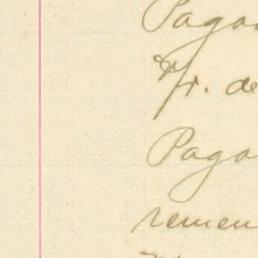 Pago
Fr. de
Pago
remen